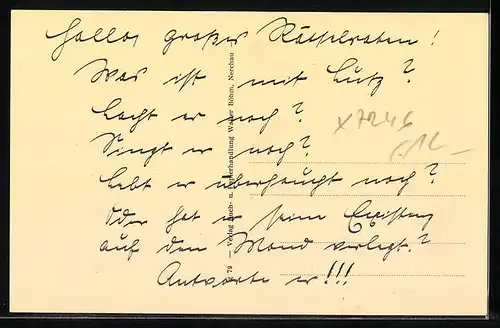 Hallo, großes Rätselraten!
Was ist mit Lutz?
Lacht er noch?
Singt er noch?
Lebt er überhaupt noch?
Oder hat er seine Existenz
auf den Mond verlegt?
Antworte er!!!
X7246
79 — Verlag Buch- u. Papierhandlung Walter Böhm, Nerchau —